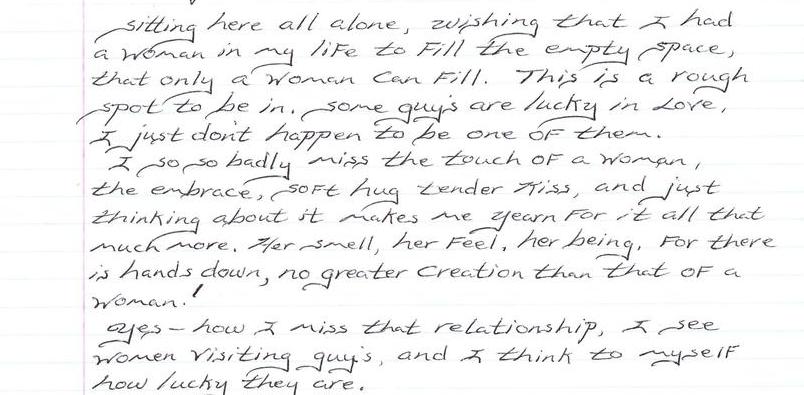 sitting here all alone, wishing that I had
a woman in my life to Fill the empty space,
that only a woman Can Fill. This is a rough
spot to be in. some guy's are lucky in Love,
I just don't happen to be one of them.
I so so badly miss the touch of a woman,
the embrace, soft hug tender Kiss, and just
thinking about it makes me yearn For it all that
much more. Her smell, her Feel, her being. For there
is hands down, no greater Creation than that of a
woman!
yes - how I miss that relationship, I see
women visiting guy's, and I think to myself
how lucky they are.